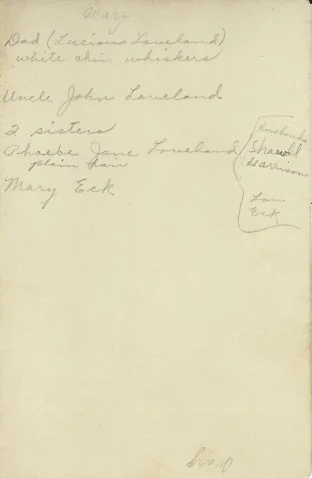 Mary
Dad (Lucious Loveland)
white chin whiskers
Uncle John Loveland
2 sisters
Phoebe Jane Loveland
plain hair
Mary Eck
Husbands
Harrison
Eck